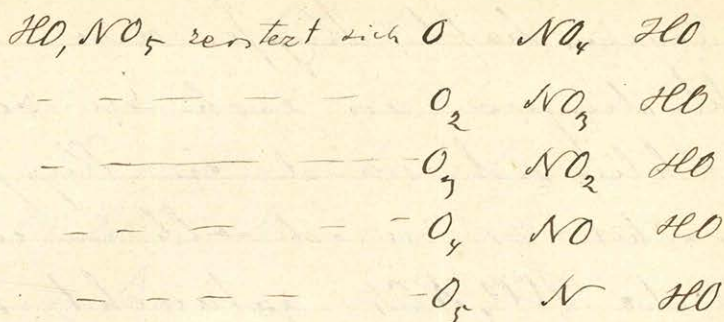 HO, NO₅ zerstezt sich O NO₄ HO
- - - - - - O₂ NO₃ HO
- - - - - O₃ NO₂ HO
- - - - - - O₄ NO HO
- - - - - - O₅ N HO